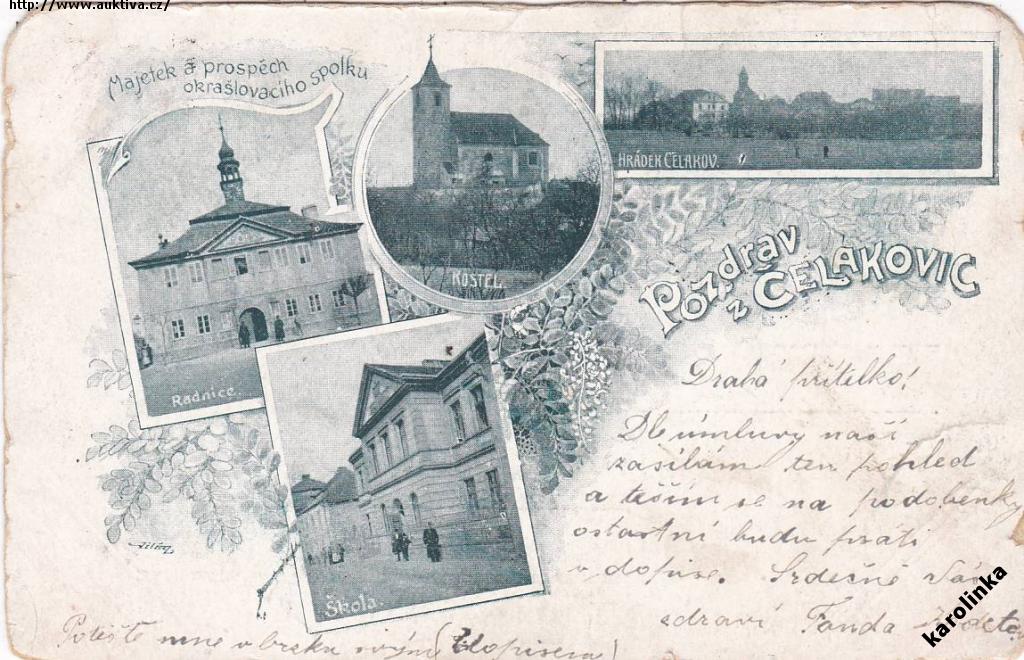 http://www.auktiva.cz/
Majetek a prospěch
okrašlovacího spolku
HRÁDEK ČELAKOV.
KOSTEL.
Pozdrav
z ČELAKOVIC
Radnice.
Škola.
Drahá přítelko!
Dle úmluvy naší
zasílám ten pohled
a těším se na podobenky
ostatní budu psáti
v dopise. Srdečně Vás
zdraví Fanda
Potěšte mne v brzku svým (dopisem)
karolinka